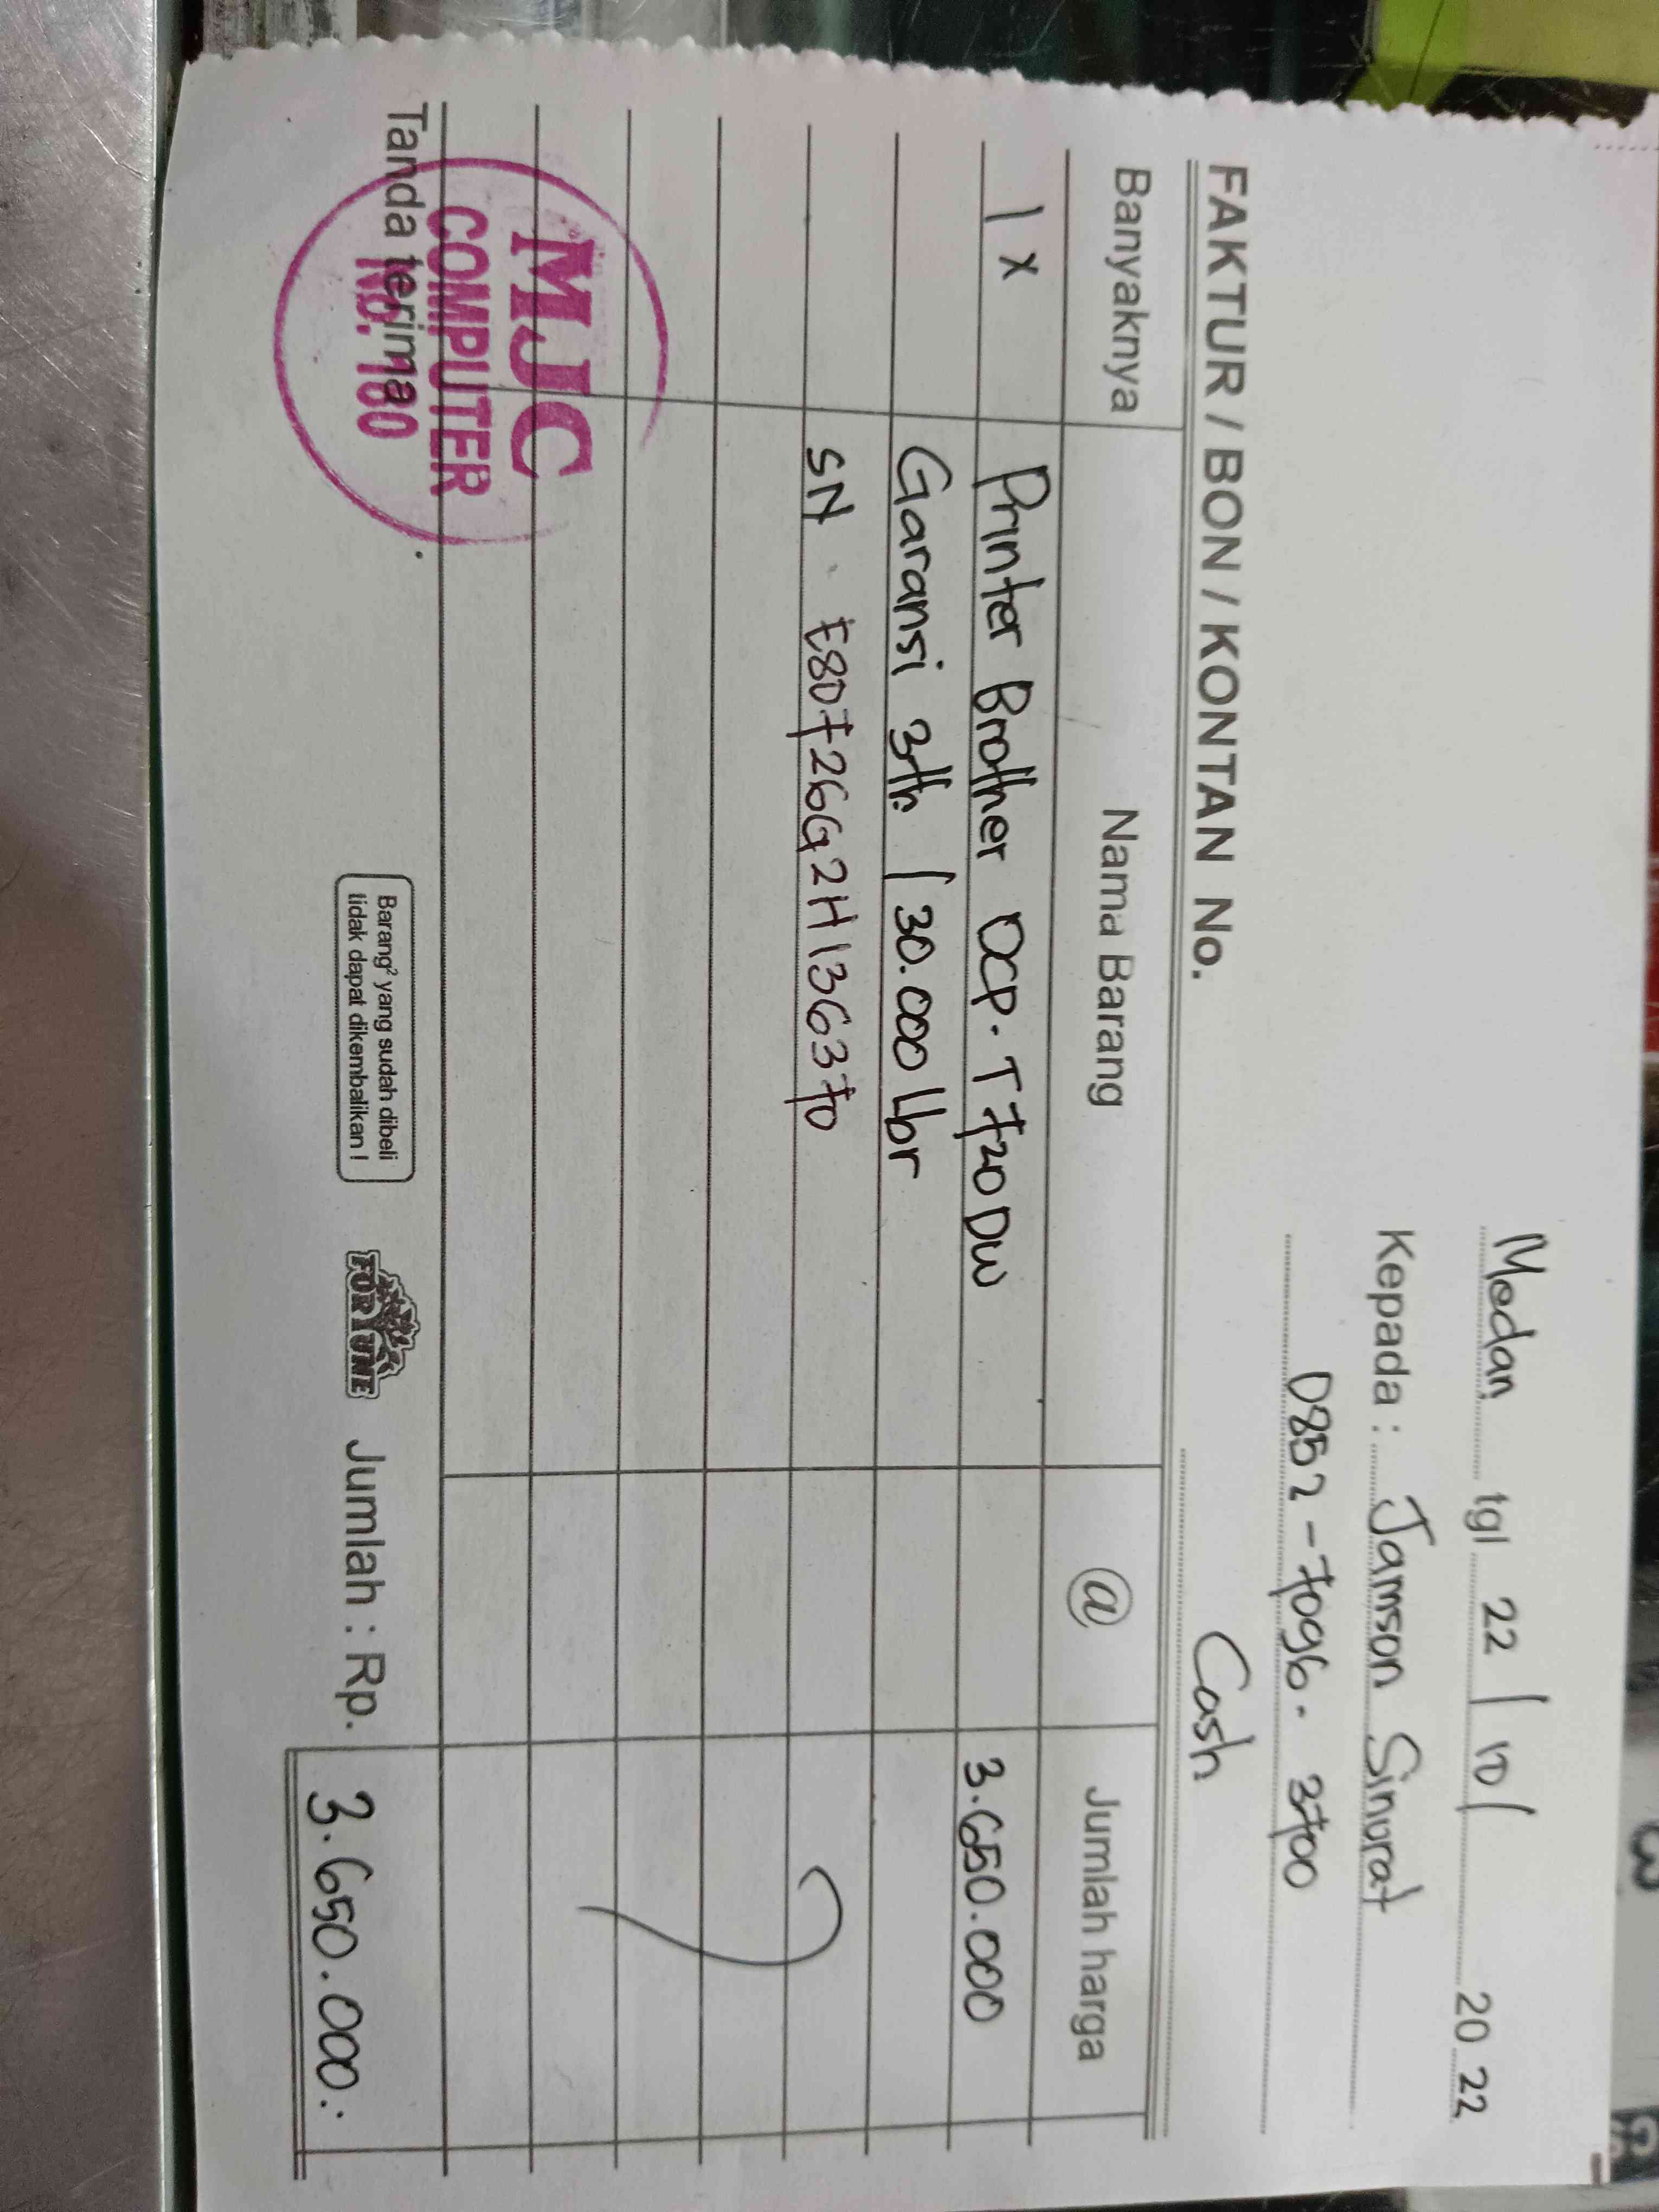 Medan tgl 22 / 10 / 20 22
Kepada : Jamson Sinurat
0852 - 7096 - 3700
FAKTUR / BON / KONTAN No. Cash
Banyaknya Nama Barang @ Jumlah harga
1 x Printer Brother DCP. T720DW 3.650.000
Garansi 3th / 30.000 Lbr
SN : E80726G2H136370
MJC
COMPUTER
NO. 180
Tanda terima
Barang² yang sudah dibeli
tidak dapat dikembalikan !
FORTUNE
Jumlah : Rp. 3.650.000.-